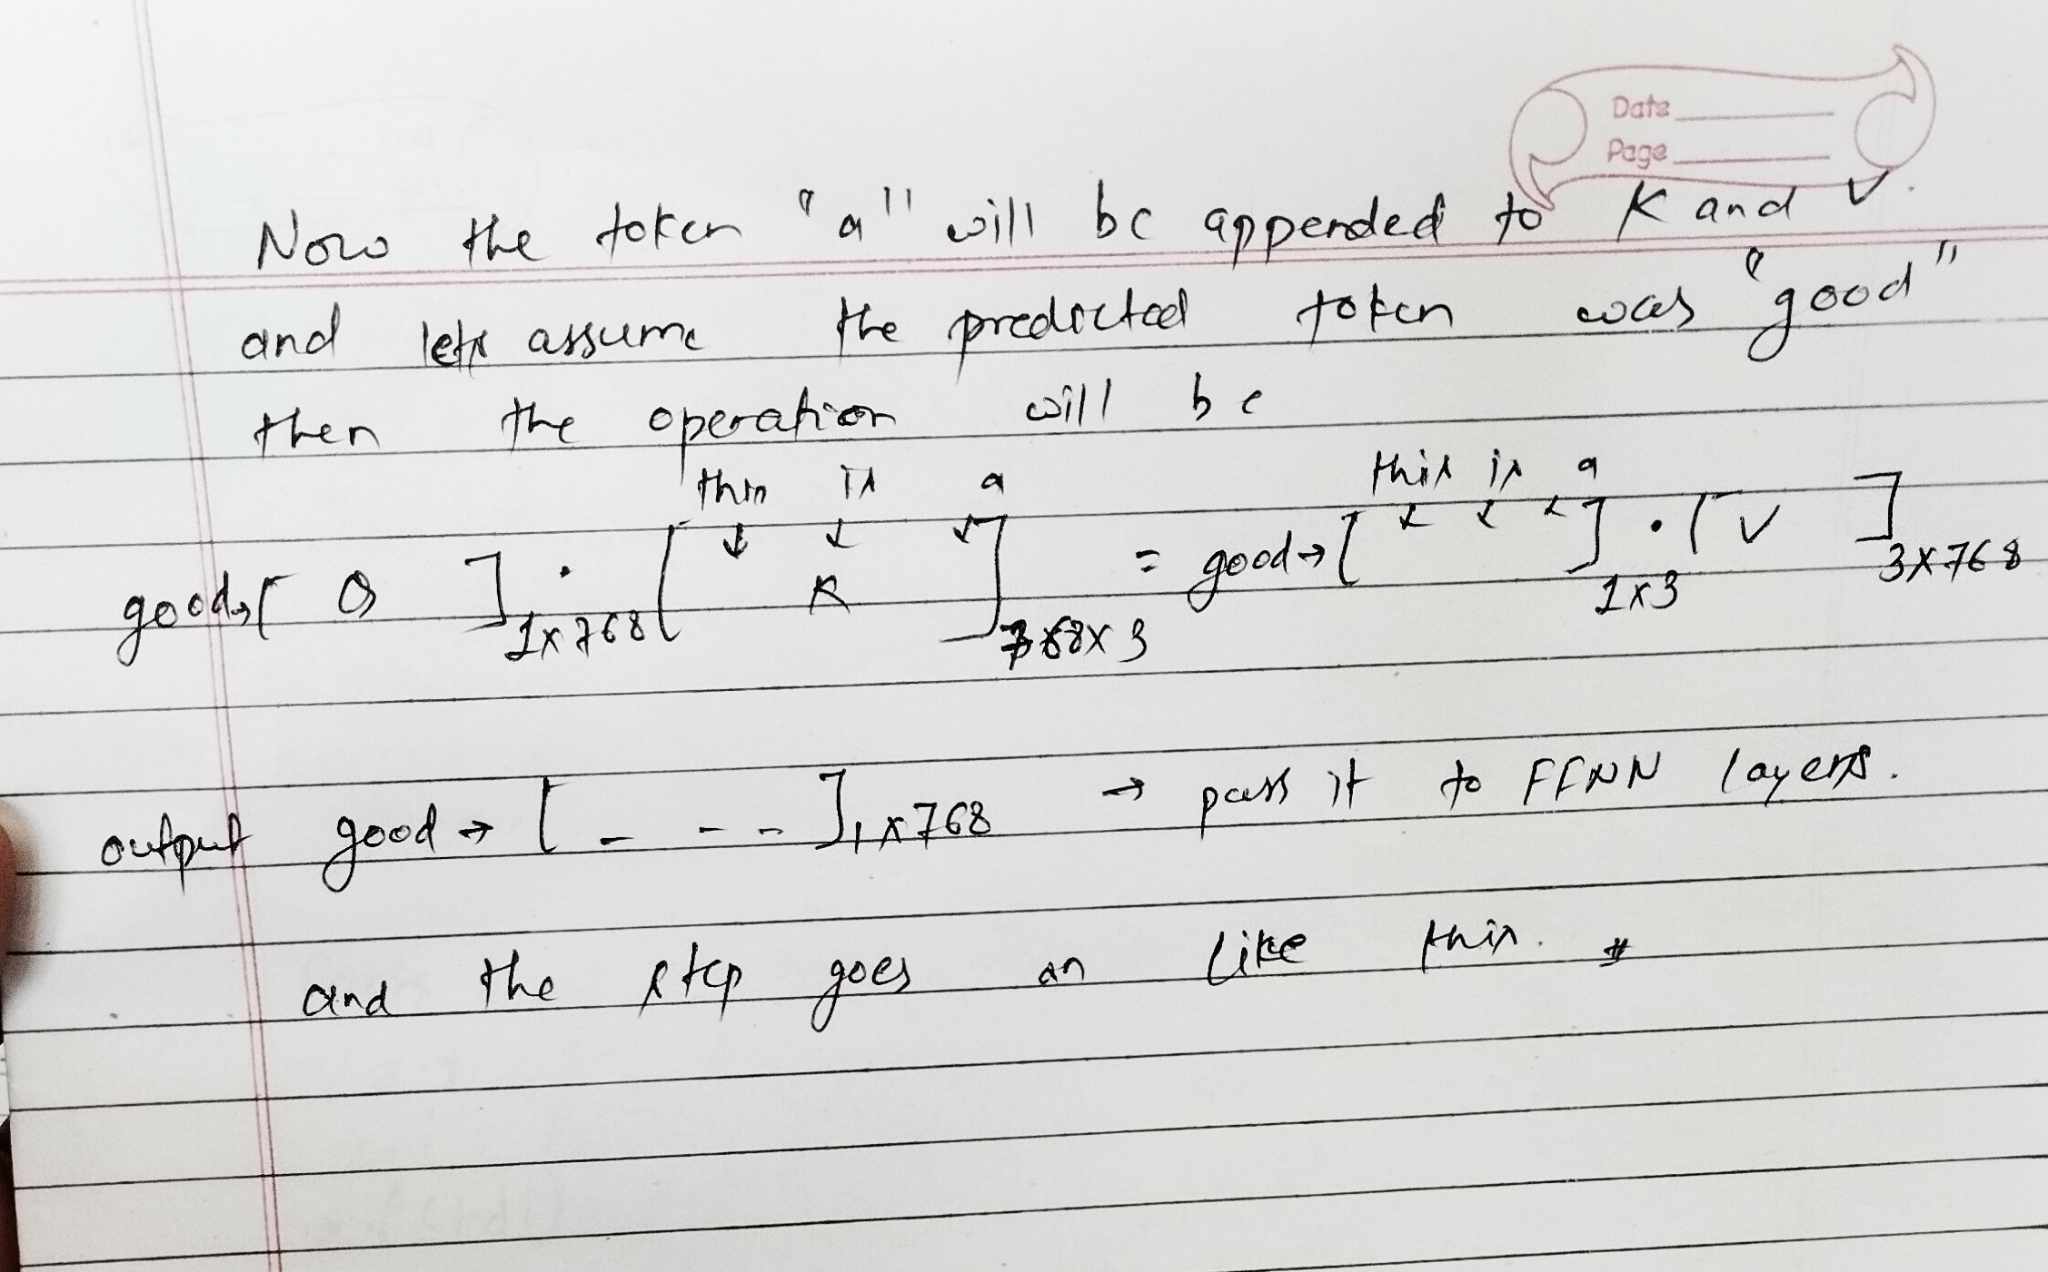 Date
Page
Now the token "a" will be appended to K and V.
and lets assume the predicted token was "good"
then the operation will be
this is a this is a
good→[ Q ]1x768 · [ K ]768x3 = good→[ ]1x3 · [ V ]3x768
output good → [ - - - ]1x768 → pass it to FFNN layers.
and the step goes on like this. #